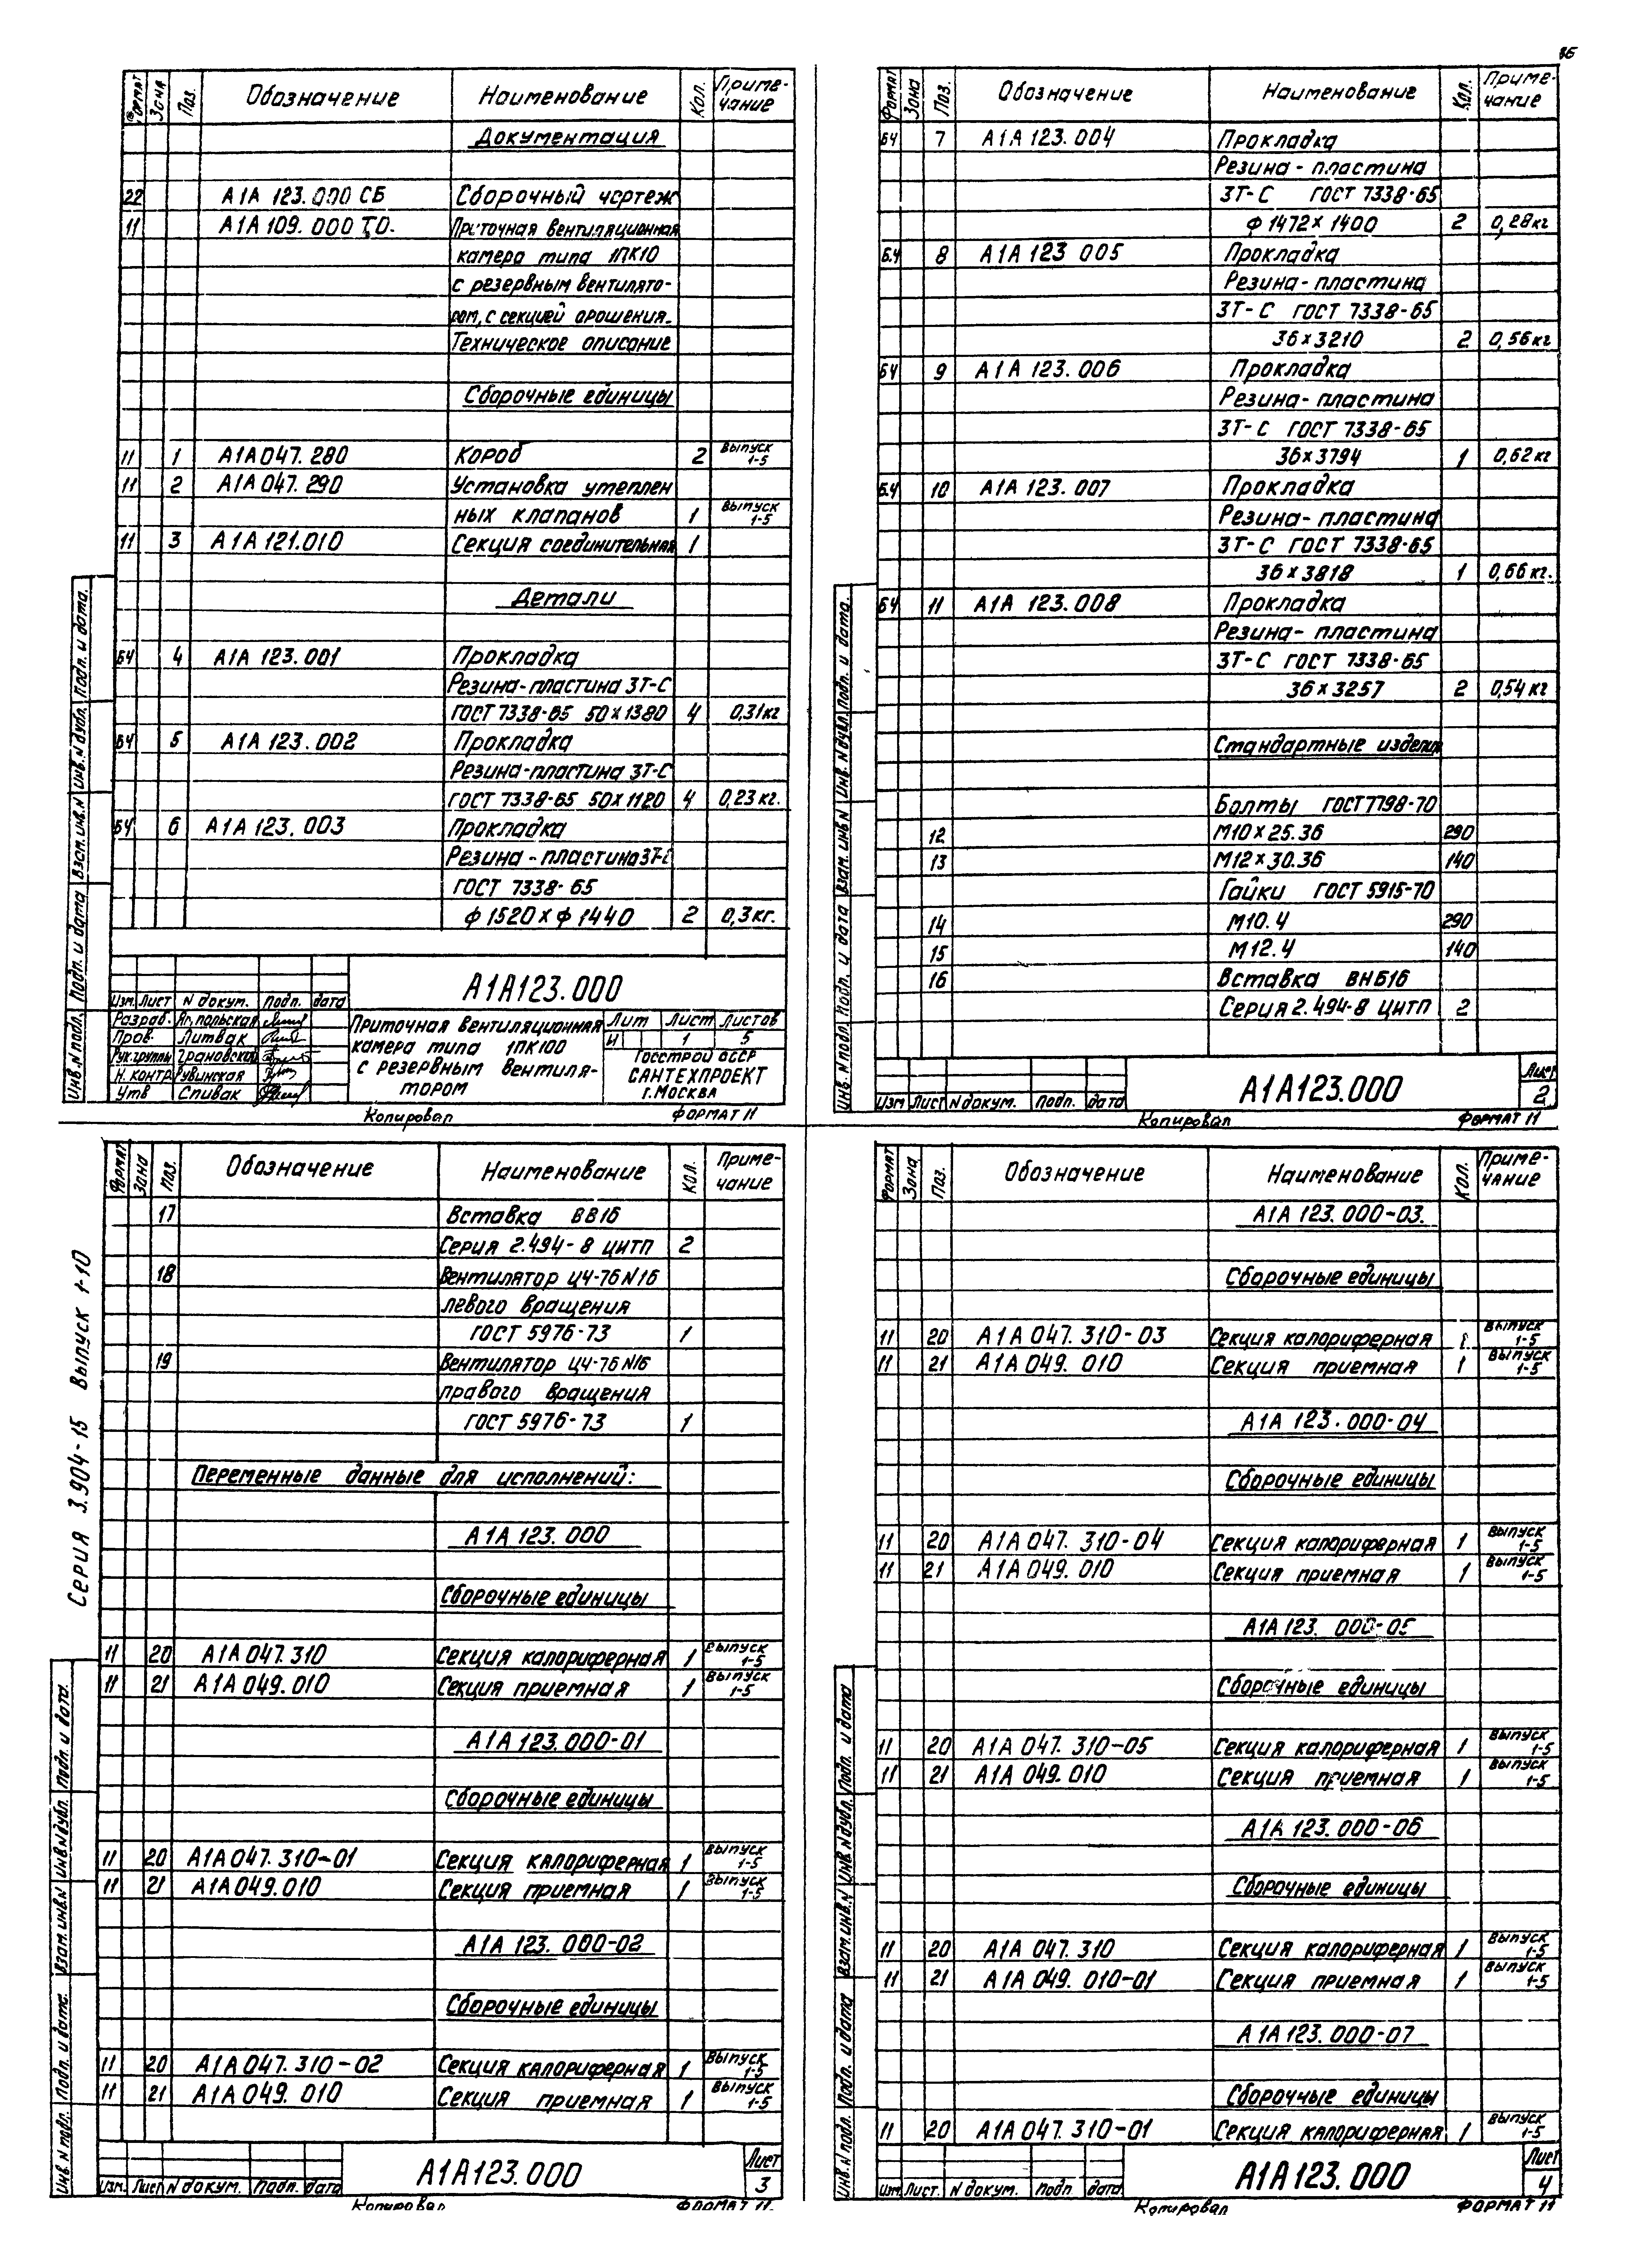 Формат Зона Поз. Обозначение Наименование Кол. Приме-
чание
Документация
22 А1А 123.000 СБ Сборочный чертеж
11 А1А 109.000 ТО. Приточная вентиляционная
камера типа 1ПК10
с резервным вентилято-
ром, с секцией орошения.
Техническое описание
Сборочные единицы
11 1 А1А047.280 Короб 2 Выпуск
1-5
11 2 А1А047.290 Установка утеплен
ных клапанов 1 Выпуск
1-5
11 3 А1А121.010 Секция соединительная 1
Детали
БЧ 4 А1А 123.001 Прокладка
Резина-пластина 3Т-С
ГОСТ 7338-65 50х1380 4 0,31кг
БЧ 5 А1А 123.002 Прокладка
Резина-пластина 3Т-С
ГОСТ 7338-65 50х1120 4 0,23кг.
БЧ 6 А1А 123.003 Прокладка
Резина-пластина 3Т-С
ГОСТ 7338-65
ф1520хф1440 2 0,3кг.
А1А123.000
Изм. Лист N докум. Подп. дата
Разраб. Ямпольская
Пров. Литвак
Рук.группы Грановская
Н.контр. Рувинская
Утв Спивак
Приточная вентиляционная
камера типа 1ПК100
с резервным вентиля-
тором
Лит Лист Листов
И 1 5
Госстрой СССР
САНТЕХПРОЕКТ
г.Москва
Копировал ФОРМАТ 11
Инв.N подл. Подп. и дата Взам.инв.N Инв.N дубл. Подп. и дата.
Формат Зона Поз. Обозначение Наименование Кол. Приме-
чание
БЧ 7 А1А 123.004 Прокладка
Резина-пластина
3Т-С ГОСТ 7338-65
ф1472х1400 2 0,28кг
БЧ 8 А1А 123 005 Прокладка
Резина-пластина
3Т-С ГОСТ 7338-65
36х3210 2 0,56кг
БЧ 9 А1А 123.006 Прокладка
Резина-пластина
3Т-С ГОСТ 7338-65
36х3794 1 0,62кг
БЧ 10 А1А 123.007 Прокладка
Резина-пластина
3Т-С ГОСТ 7338-65
36х3818 1 0,66кг.
БЧ 11 А1А 123.008 Прокладка
Резина-пластина
3Т-С ГОСТ 7338-65
36х3257 2 0,54кг
Стандартные изделия
Болты ГОСТ7798-70
12 М10х25.36 290
13 М12х30.36 140
Гайки ГОСТ 5915-70
14 М10.4 290
15 М12.4 140
16 Вставка ВНБ16
Серия 2.494-8 ЦИТП 2
Изм Лист N докум. Подп. дата
А1А123.000
Лист
2
Копировал ФОРМАТ 11
Инв.N подл. Подп. и дата Взам.инв.N Инв.N дубл. Подп. и дата.
Серия 3.904-15 Выпуск 1-10
Формат Зона Поз. Обозначение Наименование Кол. Приме-
чание
17 Вставка ВВ16
Серия 2.494-8 ЦИТП 2
18 Вентилятор Ц4-76N16
левого вращения
ГОСТ 5976-73 1
19 Вентилятор Ц4-76N16
правого вращения
ГОСТ 5976-73 1
Переменные данные для исполнений:
А1А 123.000
Сборочные единицы
11 20 А1А 047.310 Секция калориферная 1 Выпуск
1-5
11 21 А1А 049.010 Секция приемная 1 Выпуск
1-5
А1А 123.000-01
Сборочные единицы
11 20 А1А 047.310-01 Секция калориферная 1 Выпуск
1-5
11 21 А1А049.010 Секция приемная 1 Выпуск
1-5
А1А 123.000-02
Сборочные единицы
11 20 А1А 047.310-02 Секция калориферная 1 Выпуск
1-5
11 21 А1А 049.010 Секция приемная 1 Выпуск
1-5
Изм. Лист N докум. Подп. дата
А1А123.000
Лист
3
Копировал ФОРМАТ 11.
Инв.N подл. Подп. и дата. Взам.инв.N Инв.N дубл. Подп. и дата.
Формат Зона Поз. Обозначение Наименование Кол. Приме-
чание
А1А 123.000-03.
Сборочные единицы
11 20 А1А 047.310-03 Секция калориферная 1 Выпуск
1-5
11 21 А1А 049.010 Секция приемная 1 Выпуск
1-5
А1А 123.000-04
Сборочные единицы
11 20 А1А 047.310-04 Секция калориферная 1 Выпуск
1-5
11 21 А1А 049.010 Секция приемная 1 Выпуск
1-5
А1А 123.000-05
Сборочные единицы
11 20 А1А 047.310-05 Секция калориферная 1 Выпуск
1-5
11 21 А1А 049.010 Секция приемная 1 Выпуск
1-5
А1А 123.000-06
Сборочные единицы
11 20 А1А 047.310 Секция калориферная 1 Выпуск
1-5
11 21 А1А 049.010-01 Секция приемная 1 Выпуск
1-5
А1А123.000-07
Сборочные единицы
11 20 А1А 047.310-01 Секция калориферная 1 Выпуск
1-5
Изм Лист. N докум. Подп дата
А1А123.000
Лист
4
Копировал ФОРМАТ 11
Инв.N подл. Подп. и дата Взам.инв.N Инв.N дубл. Подп. и дата